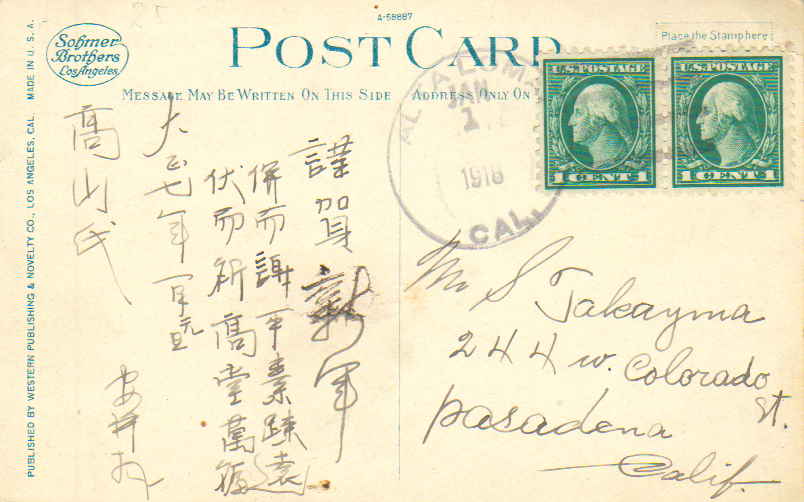 A-58887
Sohmer
Brothers
Los Angeles
POST CARD
Place the Stamp here
MESSAGE MAY BE WRITTEN ON THIS SIDE
ADDRESS ONLY ON
PUBLISHED BY WESTERN PUBLISHING & NOVELTY CO., LOS ANGELES, CAL. MADE IN U.S.A.
U.S. POSTAGE
1 CENT 1
U.S. POSTAGE
1 CENT 1
JAN
1
1918
CAL.
謹賀新年
併而謝平素疎遠
伏而祈高堂萬福
大正七年一月元旦
高山氏
Mr S Takayma
244 w. Colorado
St.
Pasadena
Calif.